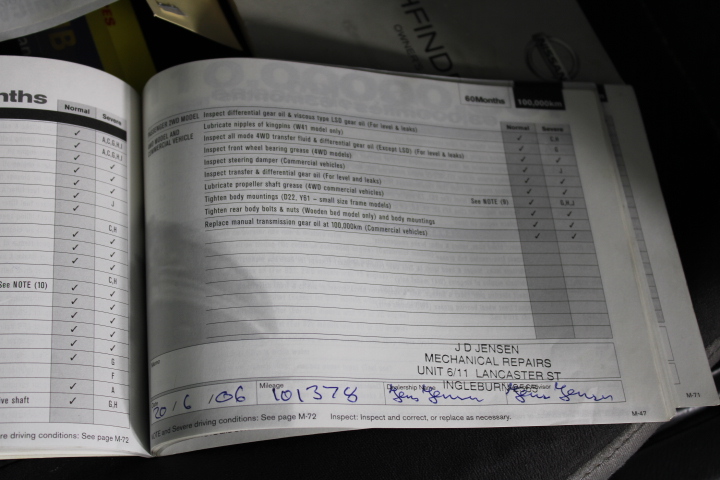 HFINDE
OWNER
NISSAN
nths
Normal Severe
A,C,G,H,I
A,C,G,H,I
J
C,H
See NOTE (10)
C,H
G
F
A
ive shaft G,H
re driving conditions: See page M-72
60Months 100,000km
Normal Severe
PASSENGER 2WD MODEL Inspect differential gear oil & viscous type LSD gear oil (For level & leaks)
Lubricate nipples of kingpins (W41 model only)
COMMERCIAL VEHICLE Inspect all mode 4WD transfer fluid & differential gear oil (Except LSD) (For level & leaks)
Inspect front wheel bearing grease (4WD models)
Inspect steering damper (Commercial vehicles)
Inspect transfer & differential gear oil (For level and leaks)
Lubricate propeller shaft grease (4WD commercial vehicles)
Tighten body mountings (D22, Y61 – small size frame models) See NOTE (9) G,H,J
Tighten rear body bolts & nuts (Wooden bed model only) and body mountings
Replace manual transmission gear oil at 100,000km (Commercial vehicles)
J D JENSEN
MECHANICAL REPAIRS
UNIT 6/11 LANCASTER ST
INGLEBURN 2565
Mileage
20/6/06 101378 Jens Jensen Jens Jensen
NOTE and Severe driving conditions: See page M-72 Inspect: Inspect and correct, or replace as necessary.
M-47
M-71